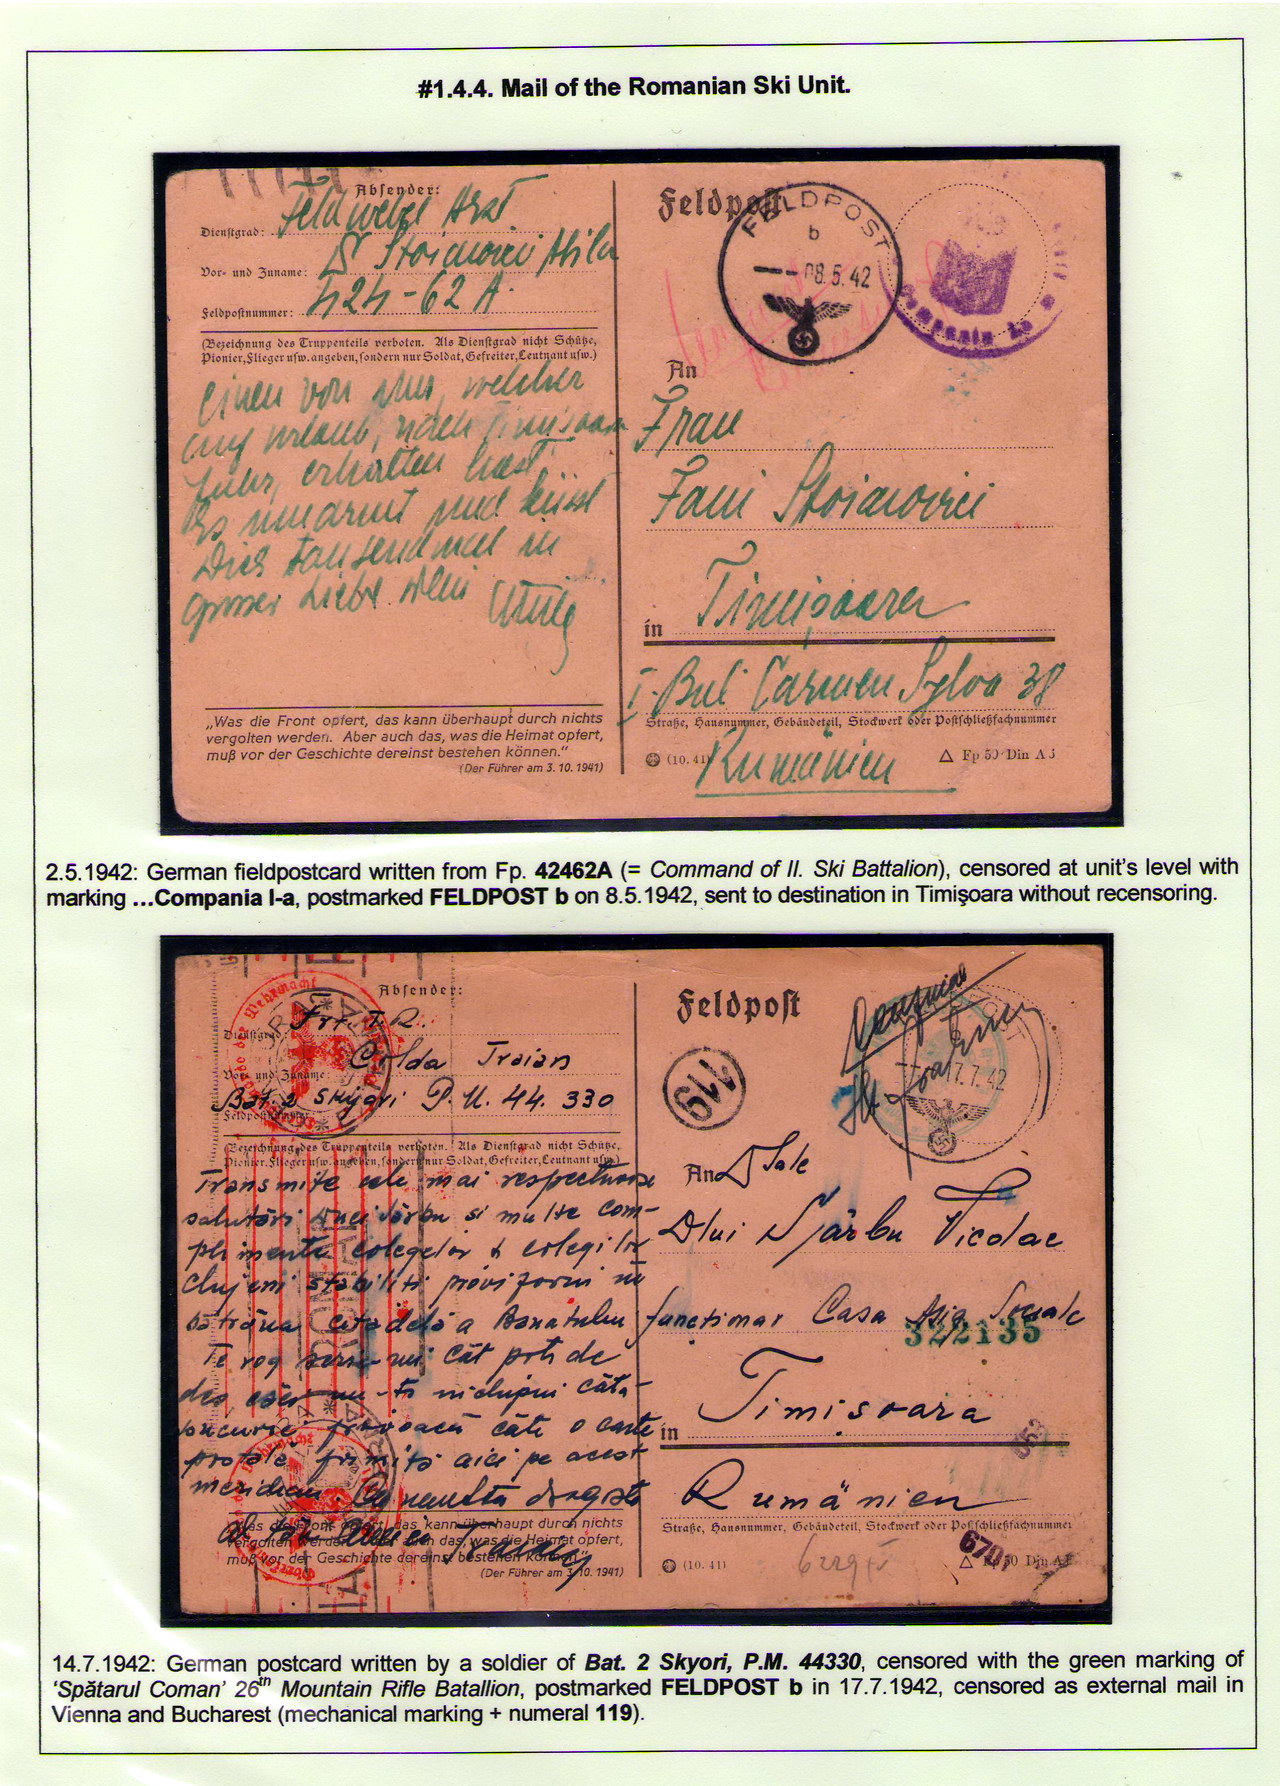 #1.4.4. Mail of the Romanian Ski Unit.
Absender:
Feldwebel Arzt
Dienstgrad:
Dr Stoianovici
Vor- und Zuname:
42462 A.
Feldpostnummer:
(Bezeichnung des Truppenteils verboten. Als Dienstgrad nicht Schütze,
Pionier, Flieger usw. angeben, sondern nur Soldat, Gefreiter, Leutnant usw.)
einen von uns, welcher
auf Urlaub, nach Timisoara
fuhr, erhalten hast.
Es umarmt und küsst
Dich tausendmal in
grosser Liebe Dein
„Was die Front opfert, das kann überhaupt durch nichts
vergolten werden. Aber auch das, was die Heimat opfert,
muß vor der Geschichte dereinst bestehen können.“
(Der Führer am 3. 10. 1941)
Feldpost
FELDPOST
b
08.5.42
Compania I-a
An
Frau
Fani Stoianovici
in Timişoara
I. Bul Carmen Sylva 38
Straße, Hausnummer, Gebäudeteil, Stockwerk oder Postschließfachnummer
(10. 41)
Rumänien
Fp 50 Din A 6
2.5.1942: German fieldpostcard written from Fp. 42462A (= Command of II. Ski Battalion), censored at unit's level with
marking ...Compania I-a, postmarked FELDPOST b on 8.5.1942, sent to destination in Timişoara without recensoring.
Absender:
Dienstgrad:
Colda Traian
Vor- und Zuname:
Bat. 2 Skyori P.M. 44.330
Feldpostnummer
(Bezeichnung des Truppenteils verboten. Als Dienstgrad nicht Schütze,
Pionier, Flieger usw. angeben, sondern nur Soldat, Gefreiter, Leutnant usw.)
Transmite cele mai respectuoase
salutări si multe com-
plimente colegelor & colegilor
clujeni stabiliti provizoriu in
bătrâna citadelă a Banatului
Te rog scrie-mi cât poti de
des, căci nu-ti inchipui câtă
bucurie provoacă câte o carte
postală primită aici pe acest
meridian. Cu multă dragoste
Was die Front opfert, das kann überhaupt durch nichts
vergolten werden. Aber auch das, was die Heimat opfert,
muß vor der Geschichte dereinst bestehen können.“
(Der Führer am 3. 10. 1941)
Feldpost
119
17.7.42
An
D Sale
Dlui Sârbu Nicolae
functionar Casa Asig Sociale
322135
in Timisoara
Rumänien
Straße, Hausnummer, Gebäudeteil, Stockwerk oder Postschließfachnummer
(10. 41)
Fp 50 Din A 6
14.7.1942: German postcard written by a soldier of Bat. 2 Skyori, P.M. 44330, censored with the green marking of
‘Spătarul Coman’ 26th Mountain Rifle Batallion, postmarked FELDPOST b in 17.7.1942, censored as external mail in
Vienna and Bucharest (mechanical marking + numeral 119).